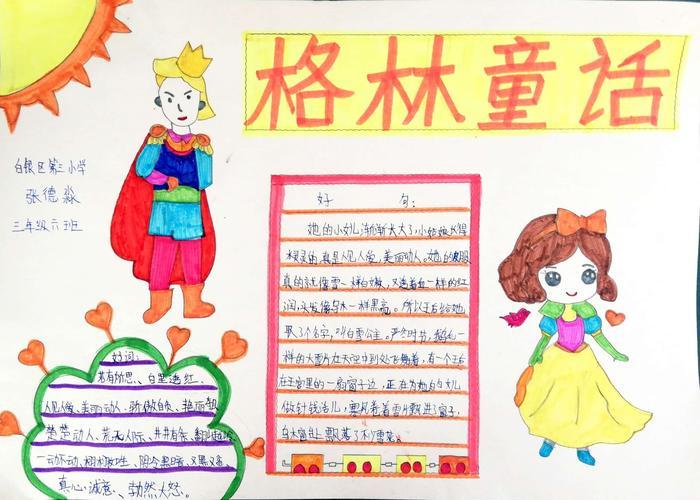 格林童话
白银区第三小学
张德淼
三年级六班
好 句：
她的小女儿渐渐长大了，小姑娘长得
真是人见人爱，美丽动人。她的皮肤
真的就像雪一样白嫩，又透着血一样的红
润，头发像乌木一样黑亮。所以王后给她
取了个名字，叫白雪公主。严冬时节，鹅毛一
样的大雪片在天空中到处飞舞着，有一个王后
在王宫里的一扇窗子边，正在为她的女儿
做针线活儿，寒风卷着雪片飘进了窗子，
乌木窗台上飘落了不少雪花。
好词：
若有所思、白里透红、
人见人爱、美丽动人、骄傲自负、
楚楚动人、荒无人际、井井有条、
一动不动、阴谷黑暗、又黑又亮
真心诚意、勃然大怒。